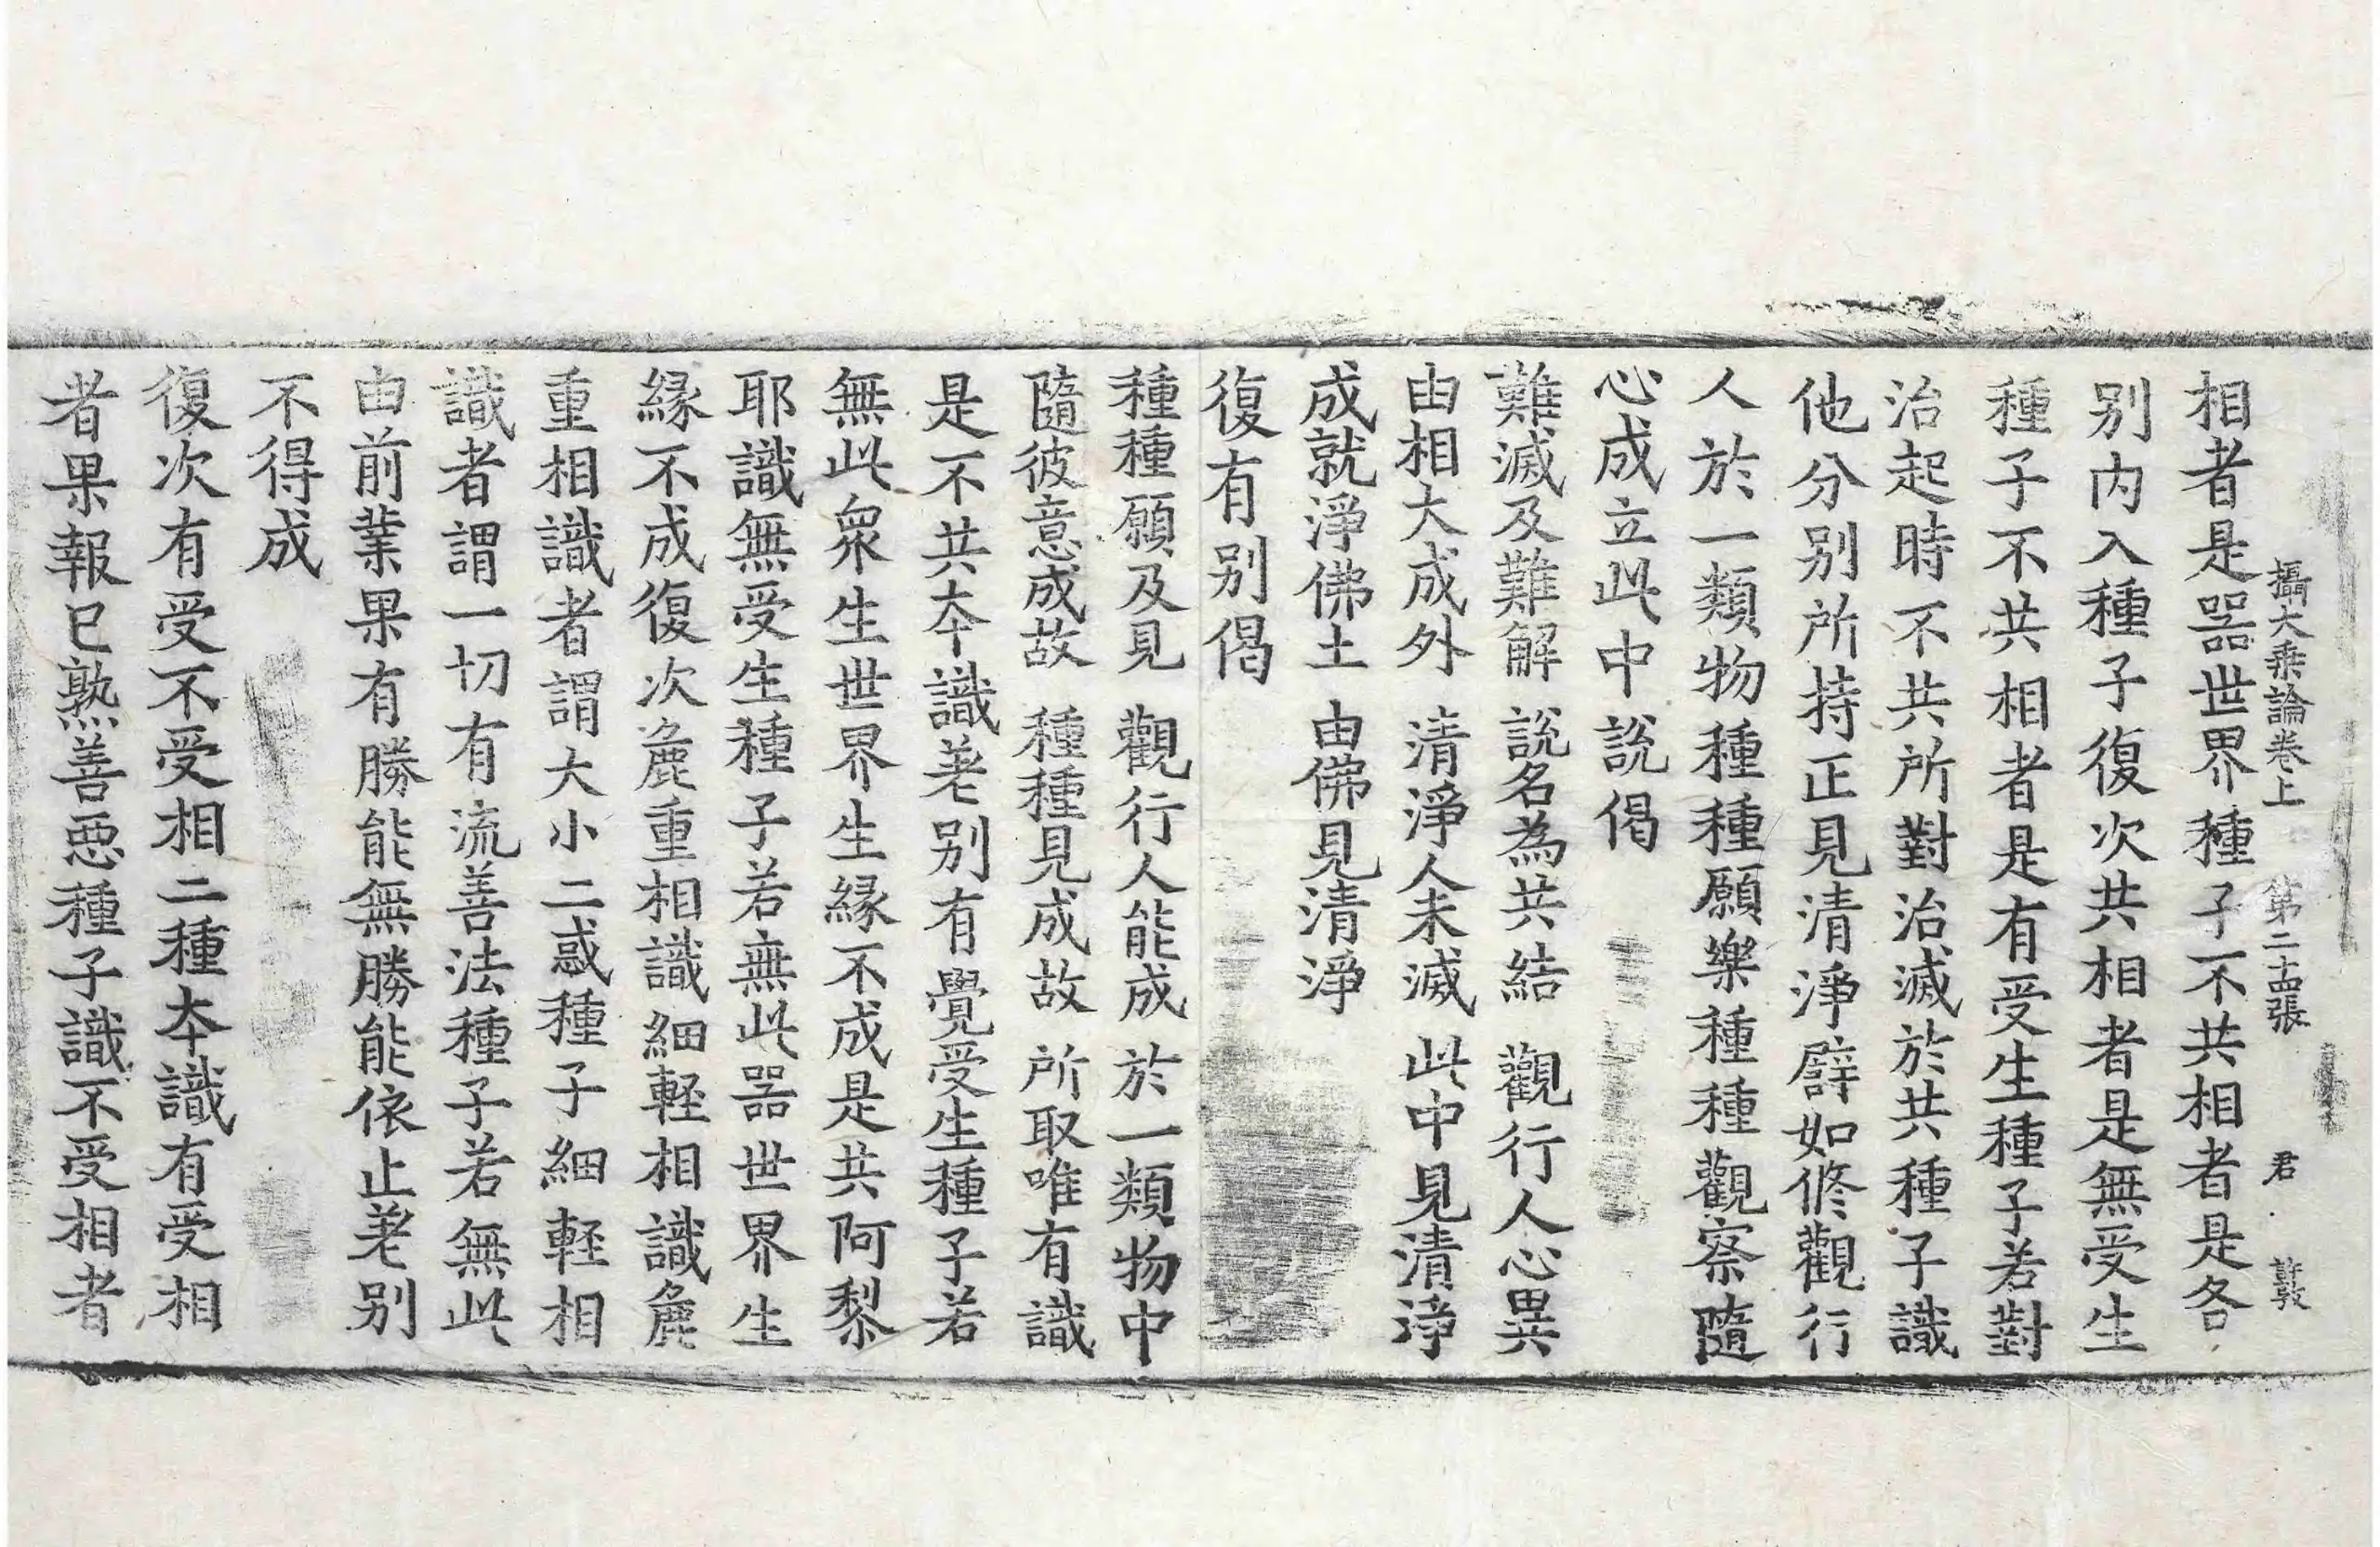 攝大乘論卷上 第二十四張 君 許敦
相者是器世界種子不共相者是各
别内入種子復次共相者是無受生
種子不共相者是有受生種子若對
治起時不共所對治滅於共種子識
他分别所持正見清淨譬如修觀行
人於一類物種種願樂種種觀察隨
心成立此中説偈
難滅及難解 説名為共結 觀行人心異
由相大成外 清淨人未滅 此中見清淨
成就淨佛土 由佛見清淨
復有别偈
種種願及見 觀行人能成 於一類物中
隨彼意成故 種種見成故 所取唯有識
是不共夲識差别有覺受生種子若
無此衆生世界生縁不成是共阿梨
耶識無受生種子若無此器世界生
縁不成復次麁重相識細輕相識麁
重相識者謂大小二惑種子細輕相
識者謂一切有流善法種子若無此
由前業果有勝能無勝能依止差别
不得成
復次有受不受相二種夲識有受相
者果報已熟善惡種子識不受相者